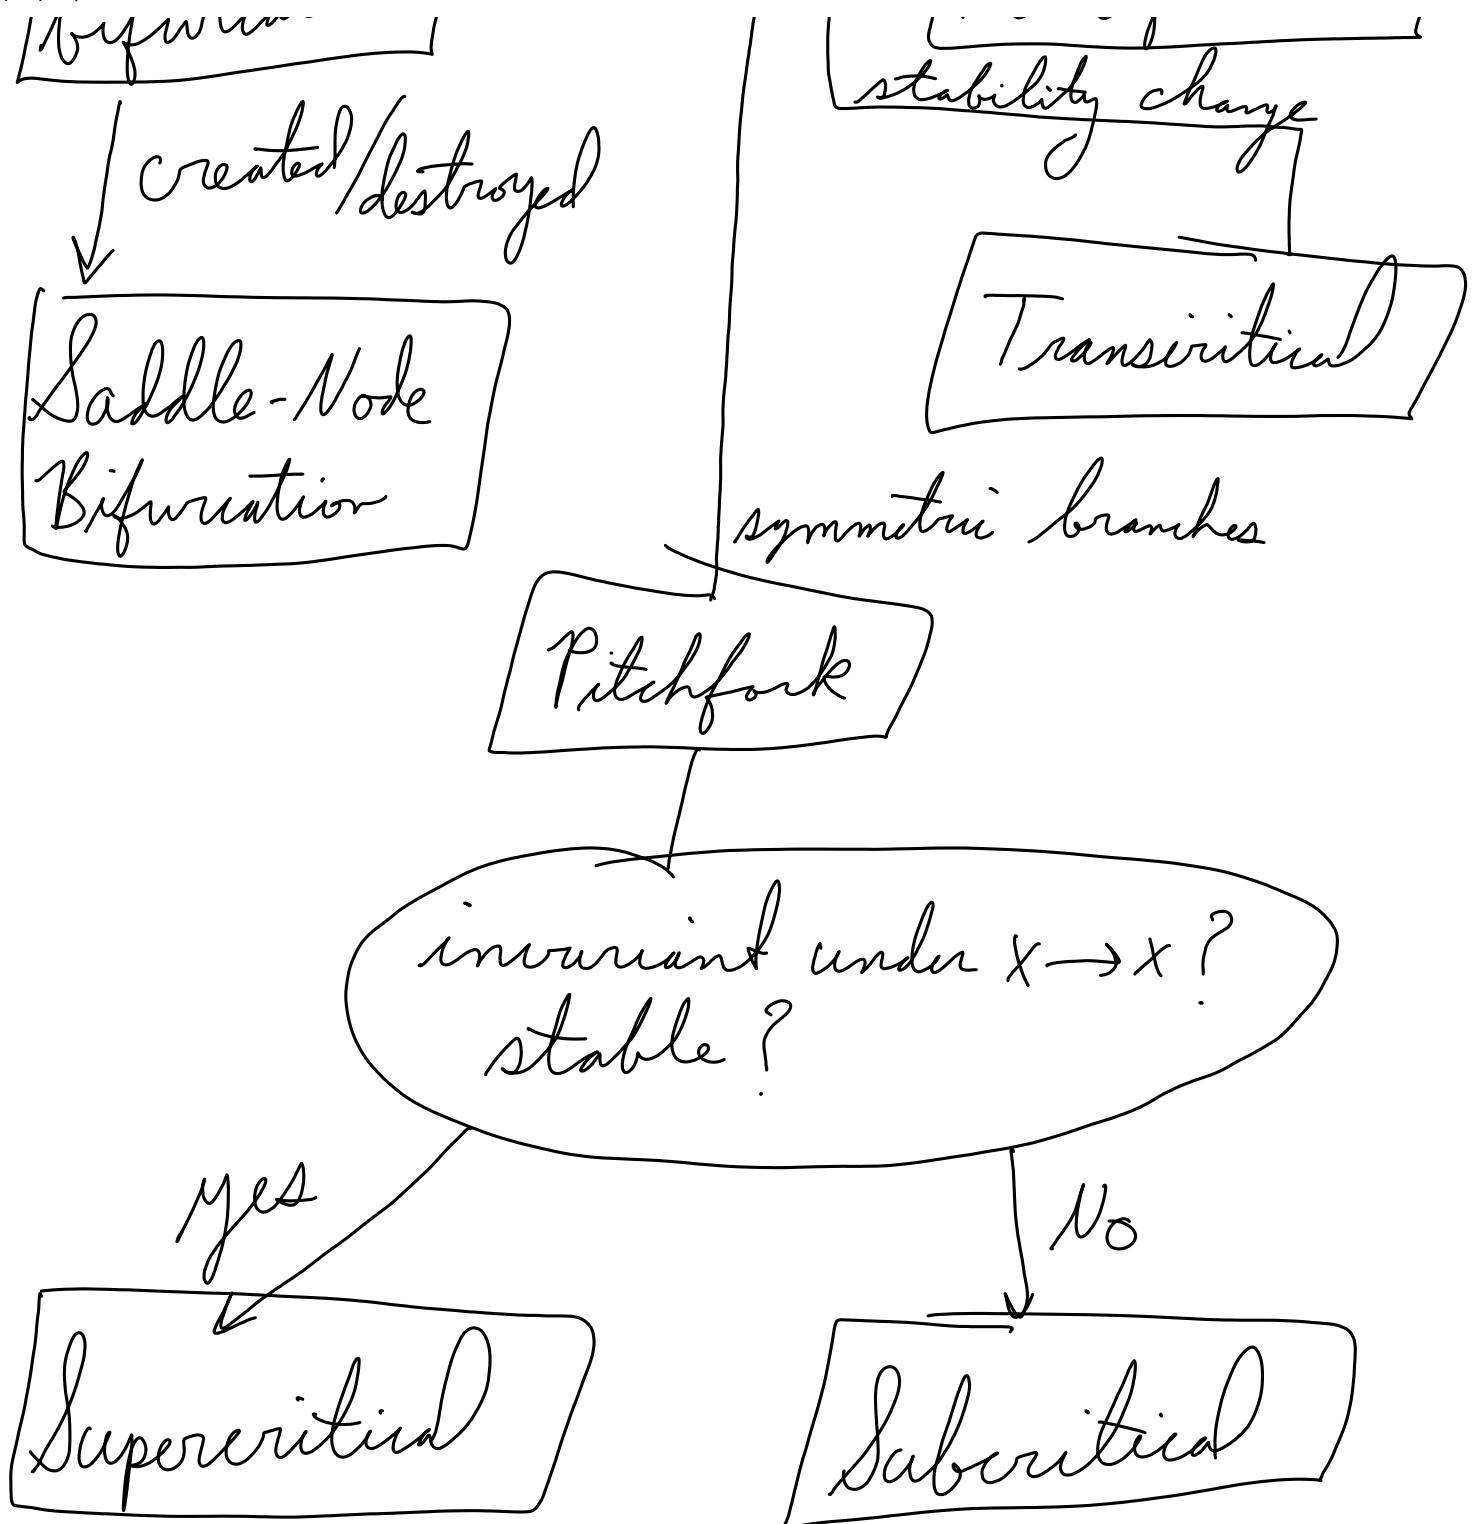 stability change
created/destroyed
Transcritical
Saddle-Node
Bifurcation
symmetric branches
Pitchfork
invariant under x→x?
stable?
yes
No
Supercritical
Subcritical